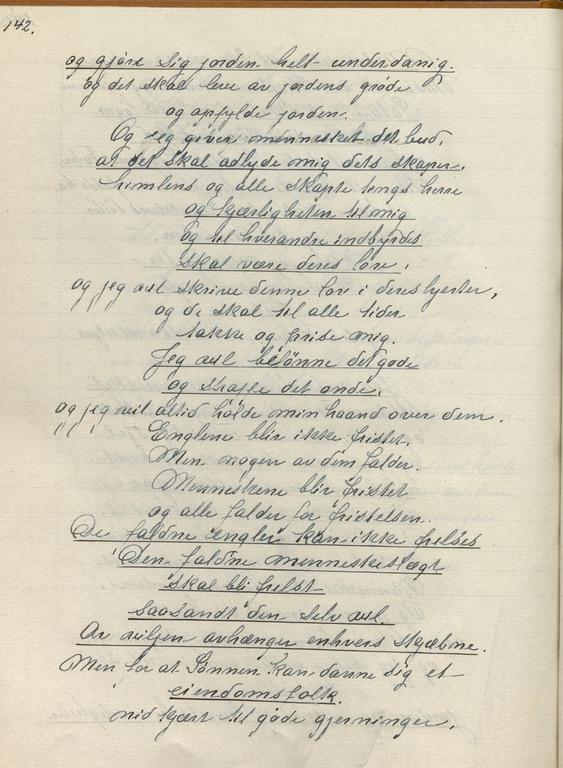 142.
og gjøre sig jorden helt underdanig.
og det skal leve av jordens grøde
og opfylde jorden.
Og jeg giver mennesket det bud,
at det skal adlyde mig dets skaper,
himlens og alle skapte tings herre
og kjærligheten til mig
og til hverandre indbyrdes
skal være deres lov,
og jeg vil skrive denne lov i deres hjerter,
og de skal til alle tider
takke og prise mig.
Jeg vil belønne det gode
og straffe det onde,
og jeg vil altid holde min haand over dem.
Englene blir ikke fristet.
Men nogen av dem falder.
Menneskene blir fristet
og alle falder for fristelsen.
De faldne engler kan ikke frelses
Den faldne menneskeslægt
skal bli frelst
saasandt den selv vil.
Av viljen avhænger enhvers skjæbne.
Men for at Sønnen kan danne sig et
eiendomsfolk.
nidkjært til gode gjerninger,